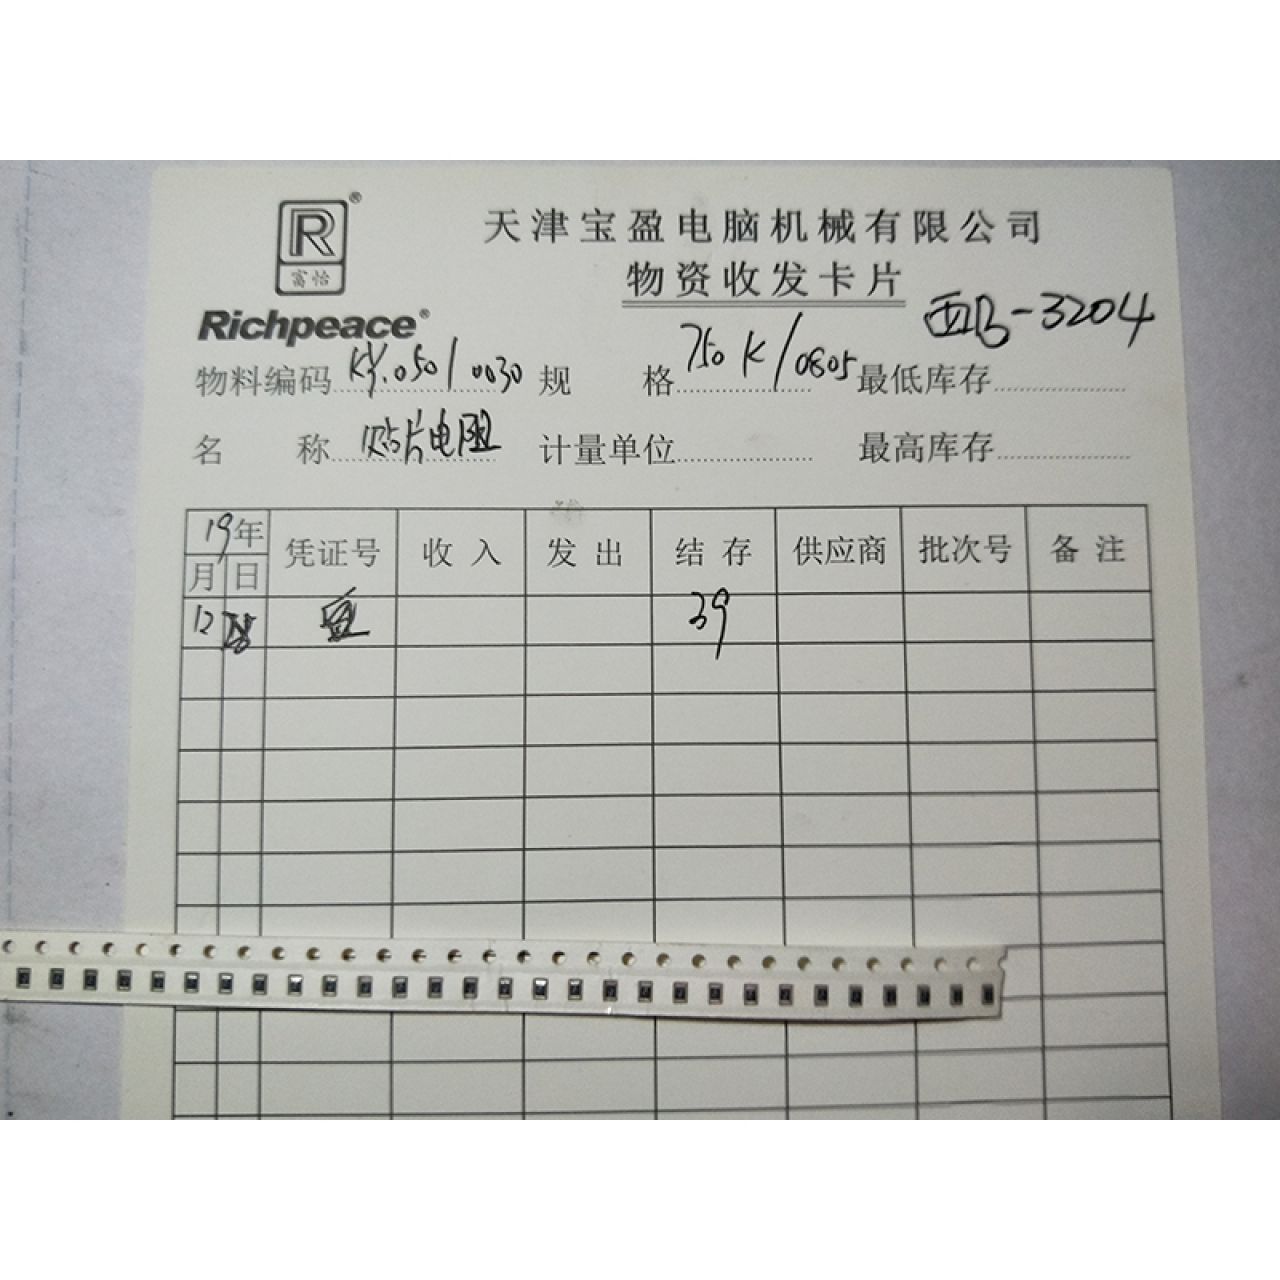 R®
富怡
Richpeace®
天津宝盈电脑机械有限公司
物资收发卡片
西B-3204
物料编码 KY.050/0030 规格 750K/0805 最低库存
名称 贴片电阻 计量单位 最高库存
19年 凭证号 收入 发出 结存 供应商 批次号 备注
月 日
12 39